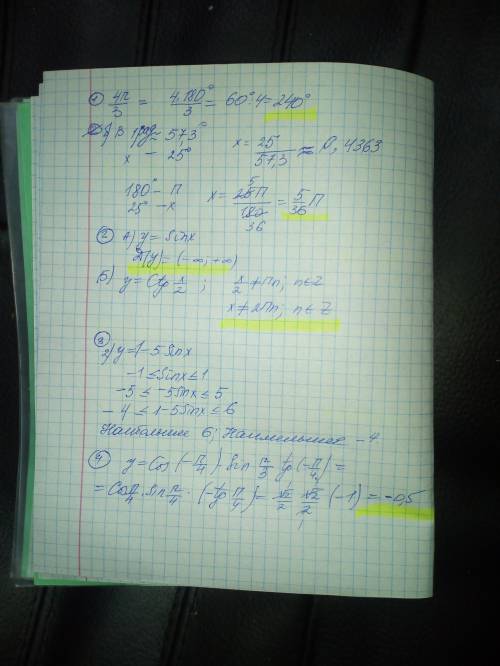 ① 4π/3 = 4·180°/3 = 60°·4 = 240°
1 рад ≈ 57,3° x = 25/57,3 ≈ 0,4363
x — 25°
180° — π x = 25π/180 = 5/36 π
25° — x
② А) y = sinx
Д(y) = (-∞; +∞)
Б) y = Ctg x/2 ; x/2 ≠ πn; n∈Z
x ≠ 2πn; n∈Z
③
2) y = 1-5sinx
-1 ≤ sinx ≤ 1
-5 ≤ -5sinx ≤ 5
-4 ≤ 1-5sinx ≤ 6
Наибольшее 6; Наименьшее -4
④ y = Cos(-π/4) sin π/3 tg(-π/4) =
= Cos π/4 · sin π/4 · (-tg π/4) = √2/2 · √2/2 (-1) = -0,5